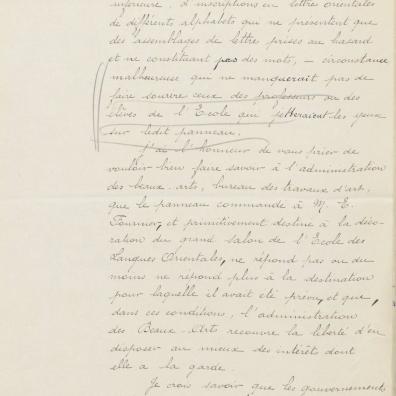 inférieure, d'inscriptions en lettres orientales
de différents alphabets qui ne présentent que
des assemblages de lettre prises au hasard
et ne constituant pas des mots, — circonstance
malheureuse qui ne manquerait pas de
faire sourire ceux des professeurs ou des
élèves de l'Ecole qui jetteraient les yeux
sur ledit panneau.
J'ai l'honneur de vous prier de
vouloir bien faire savoir à l'administration
des beaux-arts, bureau des travaux d'art,
que le panneau commandé à M. E.
Fournier, et primitivement destiné à la déco-
ration du grand salon de l'Ecole des
Langues Orientales, ne répond pas ou du
moins ne répond plus à la destination
pour laquelle il avait été prévu, et que,
dans ces conditions, l'administration
des Beaux-Arts recouvre la liberté d'en
disposer au mieux des intérêt dont
elle a la garde.
Je crois savoir que les gouvernement